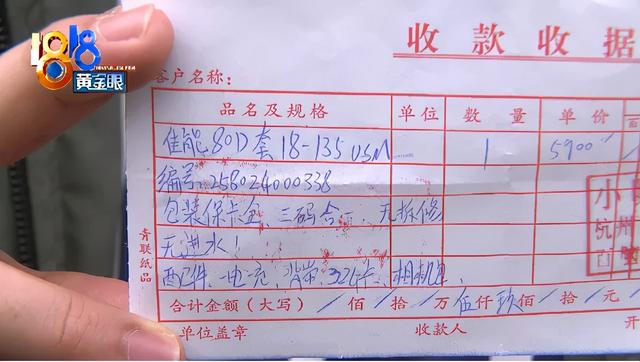 1818
黄金眼
收款收据
客户名称：
品名及规格 单位 数量 单价
佳能80D套18-135USM 1 5900
编号:258024000338
包装保卡全、三码合一、无拆修
无进水！
配件、电充、背带、32G卡、相机包
合计金额（大写） 佰 拾 万 伍仟玖佰 拾 元
单位盖章 收款人 开
青联纸品
小
杭州